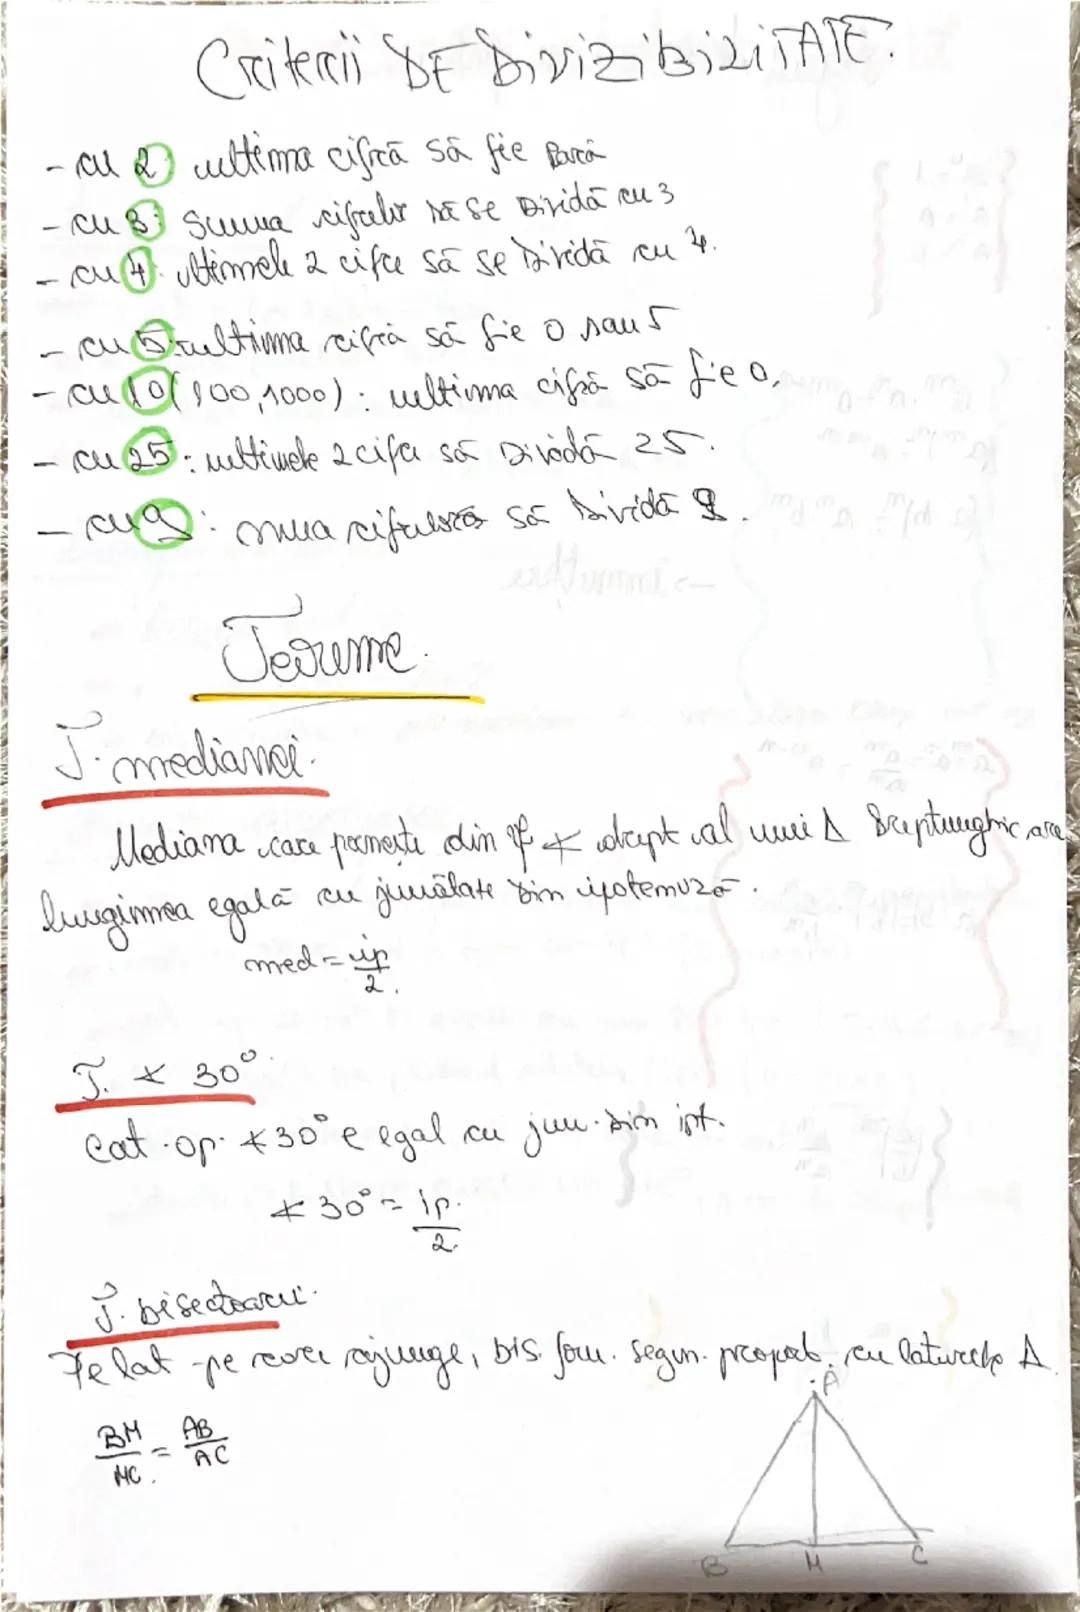 Criterii DE DiviziBiLiTATE.
- cu 2 ultima cifră să fie Pară
- cu 3: Suma cifrelor să se Dividă cu 3
- cu 4: ultimele 2 cifre să se Dividă cu 4.
- cu 5: ultima cifră să fie 0 sau 5
- cu 10(100,1000): ultima cifră să fie 0,
- cu 25: ultimele 2 cifre să Dividă 25.
- cu 9: suma cifrelor să Dividă 9.
Teoreme.
T. medianei.
Mediana care pornește din vf ∢ drept al unui Δ Dreptunghic are
lungimea egală cu jumătate din ipotenuză.
med = ip/2.
T. ∢ 30°.
Cat. op. ∢30° e egal cu jum. din ipt.
∢ 30° = ip./2.
T. bisectoarei.
Pe lat pe care ajunge, bis. form. segm. proporț. cu laturile Δ
BM/MC. = AB/AC
A
B M C